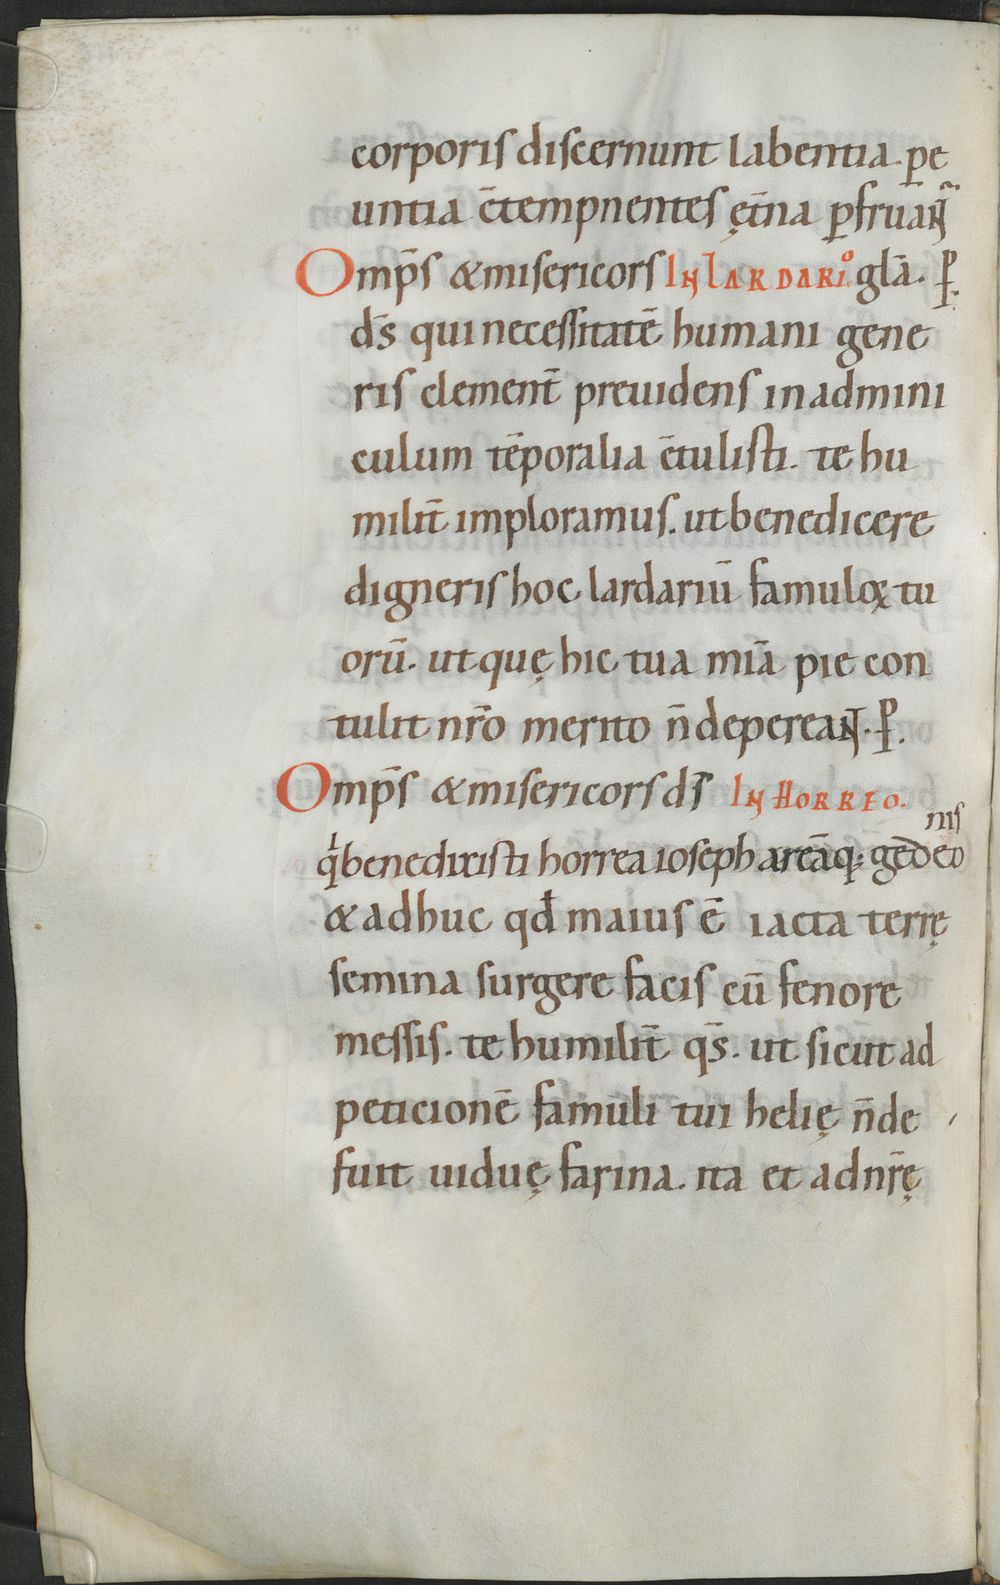 corporis discernunt labentia. p̱e
untia c̄tempnentes ęt̄na p̱fruanꞇ᷑
Omp̄s &misericors IN LARDARIO glā. ꝑ.
d̄s qui necessitatē humani gene
ris clement̄ preuidens in admini
culum tēporalia c̄tulisti. te hu
milit̄ imploramus. ut benedicere
digneris hoc lardariū famuloꝝ tu
orū. ut quę hic tua mīa pie con
tulit nr̄o merito n̄ depereant. ꝑ.
Omp̄s &misericors ds̄ IN HORREO.
qͥ benedixisti horrea ioseph areāq; gedeo
nis
& adhuc qđ maius ē iacta terrę
semina surgere facis cū fenore
messis. te humilit̄ qs̄. ut sicut ad
peticionē famuli tui helię n̄ de
fuit uiduę farina. ita et ad nr̄ę